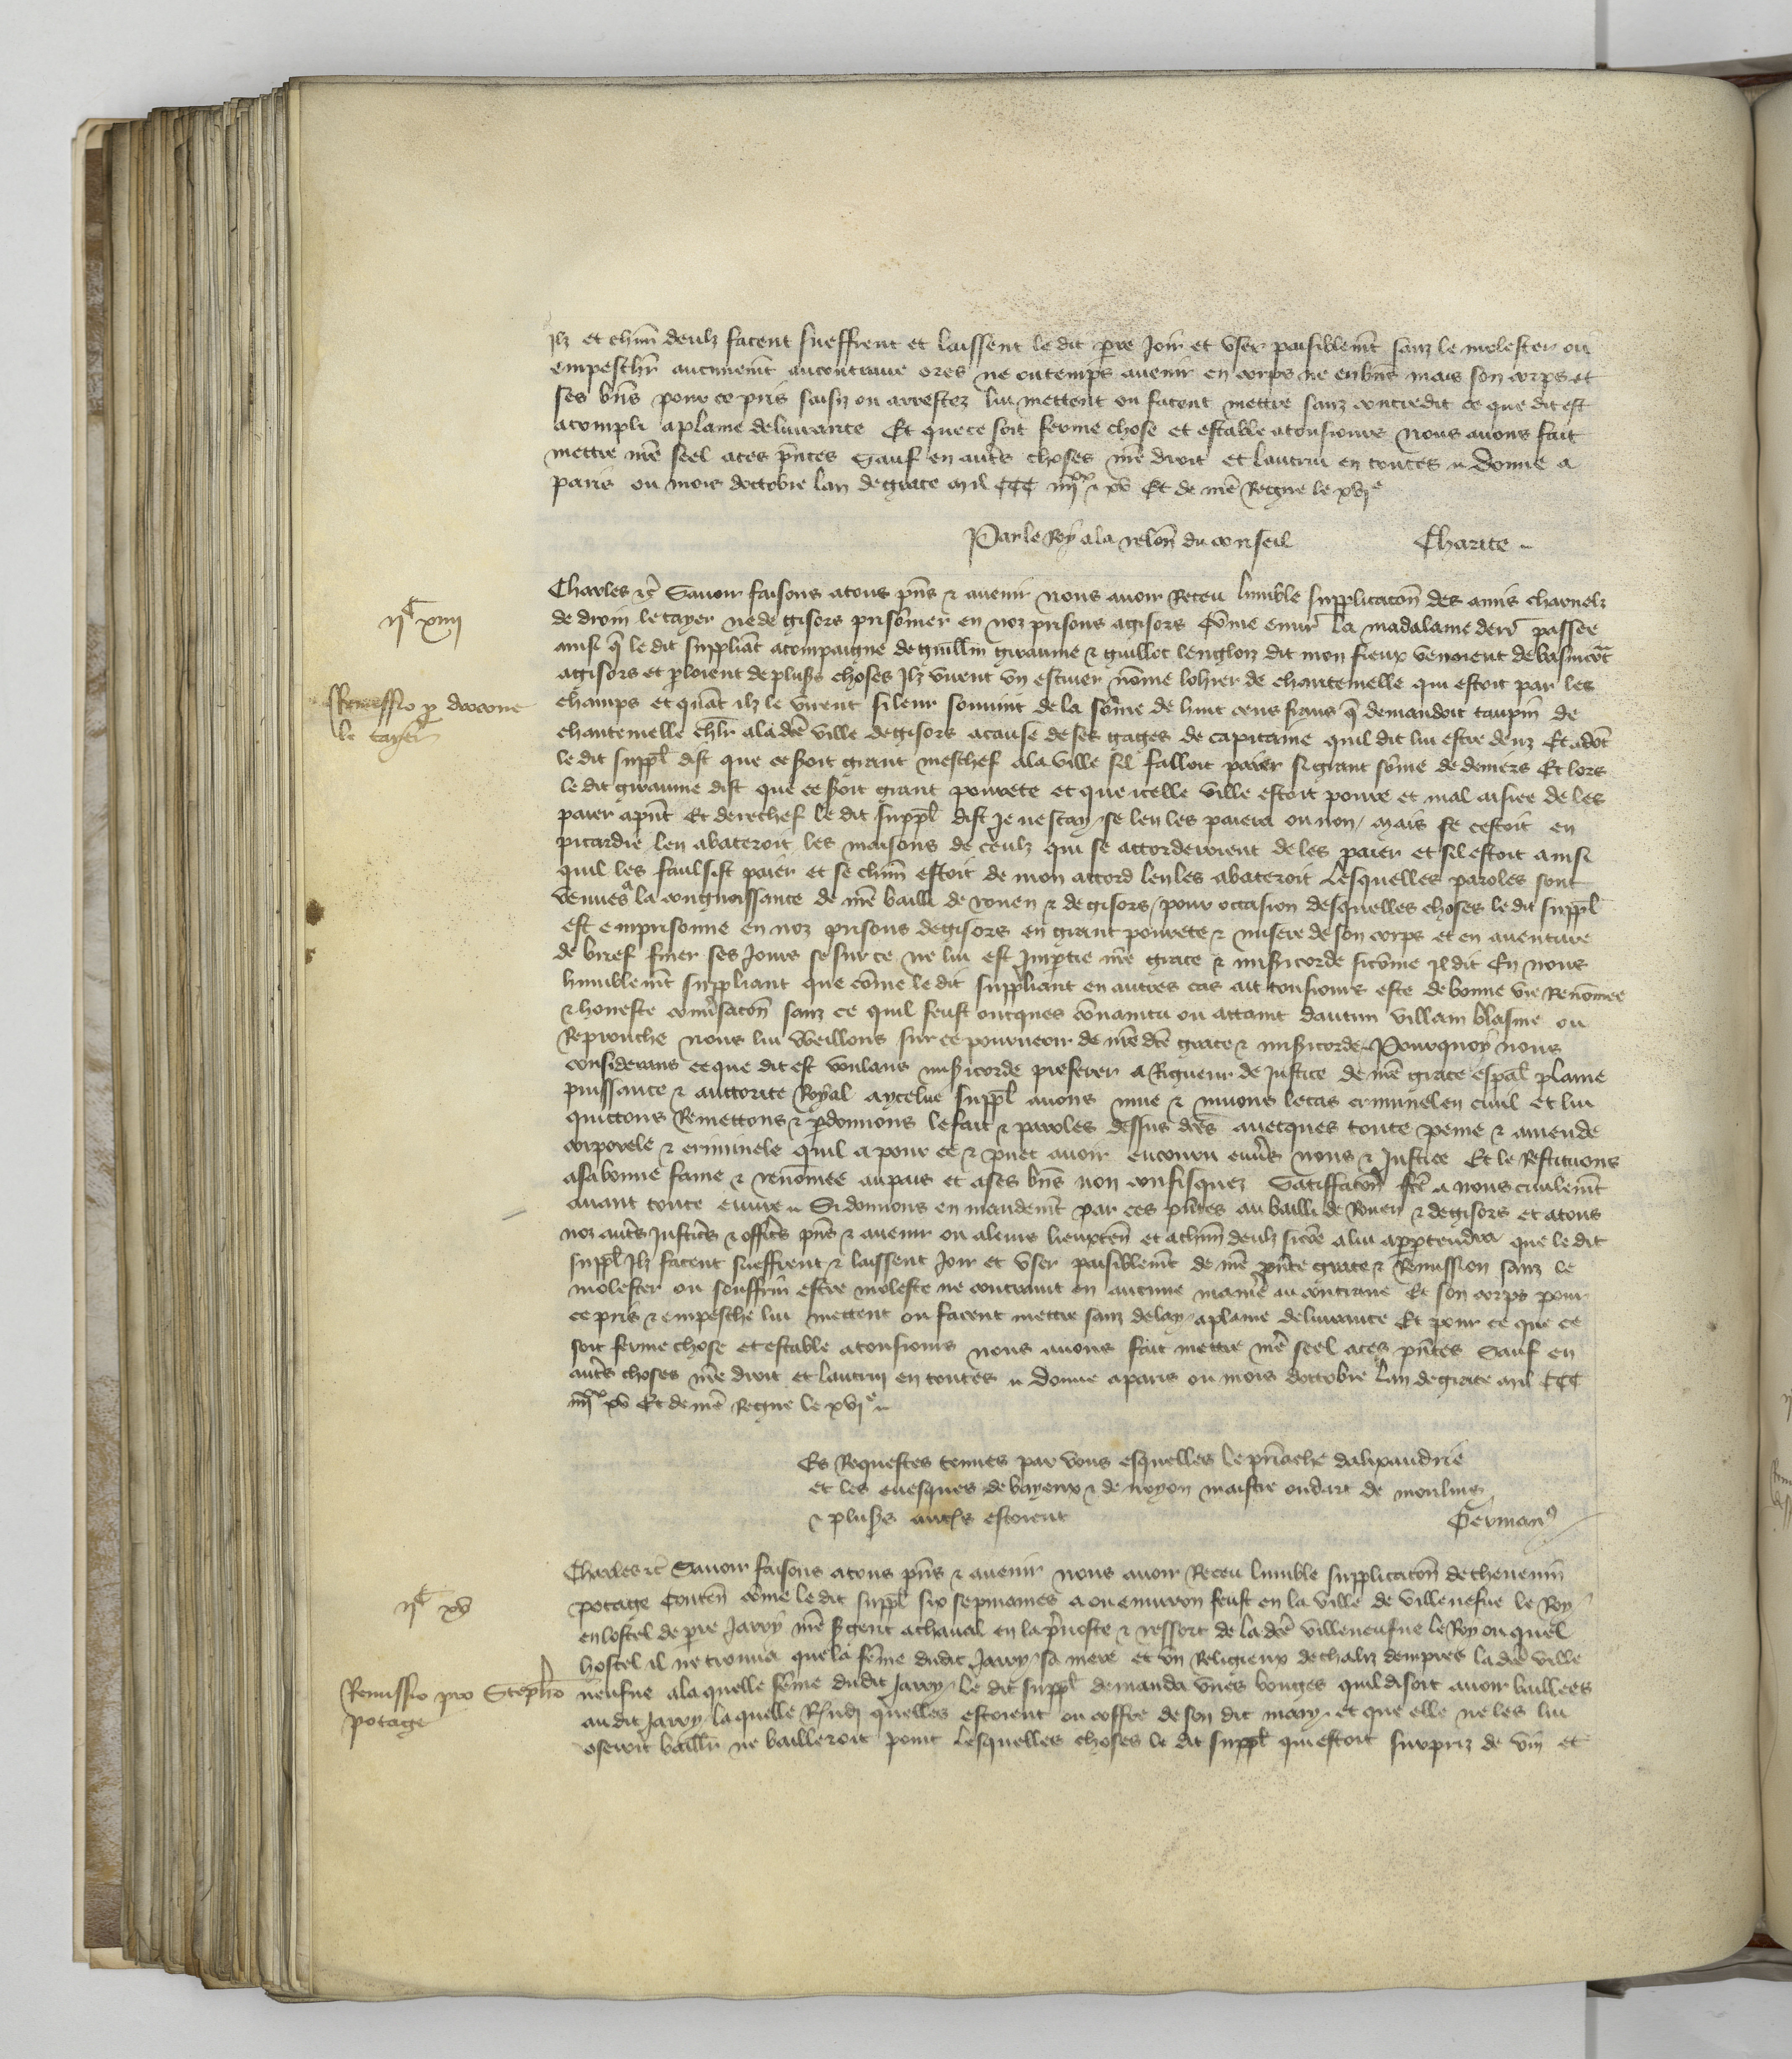 Ilz et chũn deulz facent sueffrent et laissent le dit pre Joir et user paisiblemt sanz le molester ou
empeschr aucunemt au contraire ores ne ou temps avenir en corps ne en bñs mais son corps et
ses bñs pour ce pris saisiz ou arrestez lui mettent ou facent mettre sanz contredit ce que dit est
acompli a plaine delivrance Et que ce soit ferme chose et estable a tousiours nous avons fait
mettre nre seel a ces pñtes Sauf en autrs choses nre droit et lautrui en toutes Donne a
paris ou mois doctobre lan de grace mil CCC iiiixx & xv Et de nre Regne le xvie
Par le Roy a la relon du conseil Charite
Charles &c Savoir faisons a tous pñs & avenir nous avoir Receu lumble supplicacon des amis charnelz
iic xiiii
de droin le tayer ne de gisors prisonnier en noz prisons a gisors Comme environ la madalaine derr passee
ainsi q̃ le dit suppliãt acompaigne de guillm giraume & guillot lenglois dit mon fieux venoient de
a gisors et ploient de plusrs choses Ilz virent un escuier nõme lohier de chantemelle qui estoit par les
Remissio pro drocone
le tayer
champs et quãt ilz le virent si leur souvint de la sõme de huit cens frans q̃ demandoit taupin de
chantemelle chlr a la dce ville de gisors a cause de ses gages de capitaine quil dit lui estre deuz Et adõt
le dit suppl̃ dist que ce seroit grant meschef a la ville sil falloit paier si grant sõme de deniers Et lors
le dit giraume dist que ce seroit grant povrete et que icelle ville estoit povre et mal aisiee de les
paier a pñt Et derechef le dit suppl̃ dist je ne scay se len les paiera ou non / mais se cestoit en
picardie len abateroit les maisons de ceulz qui se accorderoient de les paier et sil estoit ainsi
quil les faulsist paier et se chũn estoit de mon accord len les abateroit Lesquelles paroles sont
venues a la congnoissance de nre bailli de rouen & de gisors / pour occasion desquelles choses le dit suppl̃
est emprisonne en noz prisons de gisors en grant povrete & misere de son corps et en aventure
de brief finer ses jours se sur ce ne lui est Impartie nre grace & misericorde sicõme Il dit En nous
humblemt suppliant que cõme le dit suppliant en autres cas ait tousiours este de bonne vie Renõmee
& honeste conversacon sanz ce quil feust oncques convaincu ou attaint daucun villain blasme ou
Reprouche nous lui Veillons sur ce pourveoir de nre dce grace & misericorde Pourquoy nous
considerans ce que dit est voulans misericorde preferer a Rigueur de justice de nre grace espal plaine
puissance & auctorite Royal a ycelui suppl̃ avons mue & muons le cas criminel en civil et lui
quictons Remettons & pardonnons le fait & paroles dessus dces avecques toute peine & amende
corporele & criminele quil a pour ce & puet avoir encouru envrs nous & Justice Et le Restituons
a sa bonne fame & renõmee au pais et a ses bñs non confisquez Satiffacon fce a nous civilemt
avant toute euvre Si donnons en mandemt par ces pñtes au bailli de Rouen & de gisors et a tous
noz autrs justicrs & officrs pñs & avenir ou a leurs lieuxten et a chũn deulz sicõe a lui appartendra que le dit
suppl̃ Ilz facent sueffrent & laissent Joir et user paisiblemt de nre pñte grace & Remission sanz le
molester ou souffrir estre moleste ne contraint en aucune maniere au contraire Et son corps pour
ce pris & empesche lui mettent ou facent mettre sanz delay a plaine delivrance Et pour ce que ce
soit ferme chose et estable a tousiours nous avons fait mettre nre seel a ces pñtes Sauf en
autrs choses nre droit et lautruy en toutes Donne a paris ou mois doctobre lan de grace mil CCC
iiiixx xv Et de nre Regne le xvie
Es Requestes tenues par vous esquelles le priache dalixandrie
et les evesques de bayeux & de noyon maistre oudart de moulins
& plusrs autrs estoient Germang
Charles &c Savoir faisons a tous pñs & avenir nous avoir Receu lumble supplicacon de thevenin
iic xv
potage Conten cõme le dit suppl̃ six sepmaines a ou environ feust en la ville de villeneufve le Roy
en lostel de pre Jarry nre sgent a cheval en la prevoste & ressort de la dce villeneufve le Roy ou quel
hostel il ne trouva que la fẽme dudit Jarry sa mere et un Religieux de chaliz dempres la dce ville
Remissio pro Stephno
potage
neufve a la quelle fẽme dudit Jarry le dit suppl̃ demanda unes bouges quil disoit avoir baillees
audit Jarry / la quelle Rndi quelles estoient ou coffre de son dit mary / et que elle ne les lui
oseroit baillr ne bailleroit point Lesquelles choses le dit suppl̃ qui estoit surpriz de vin et